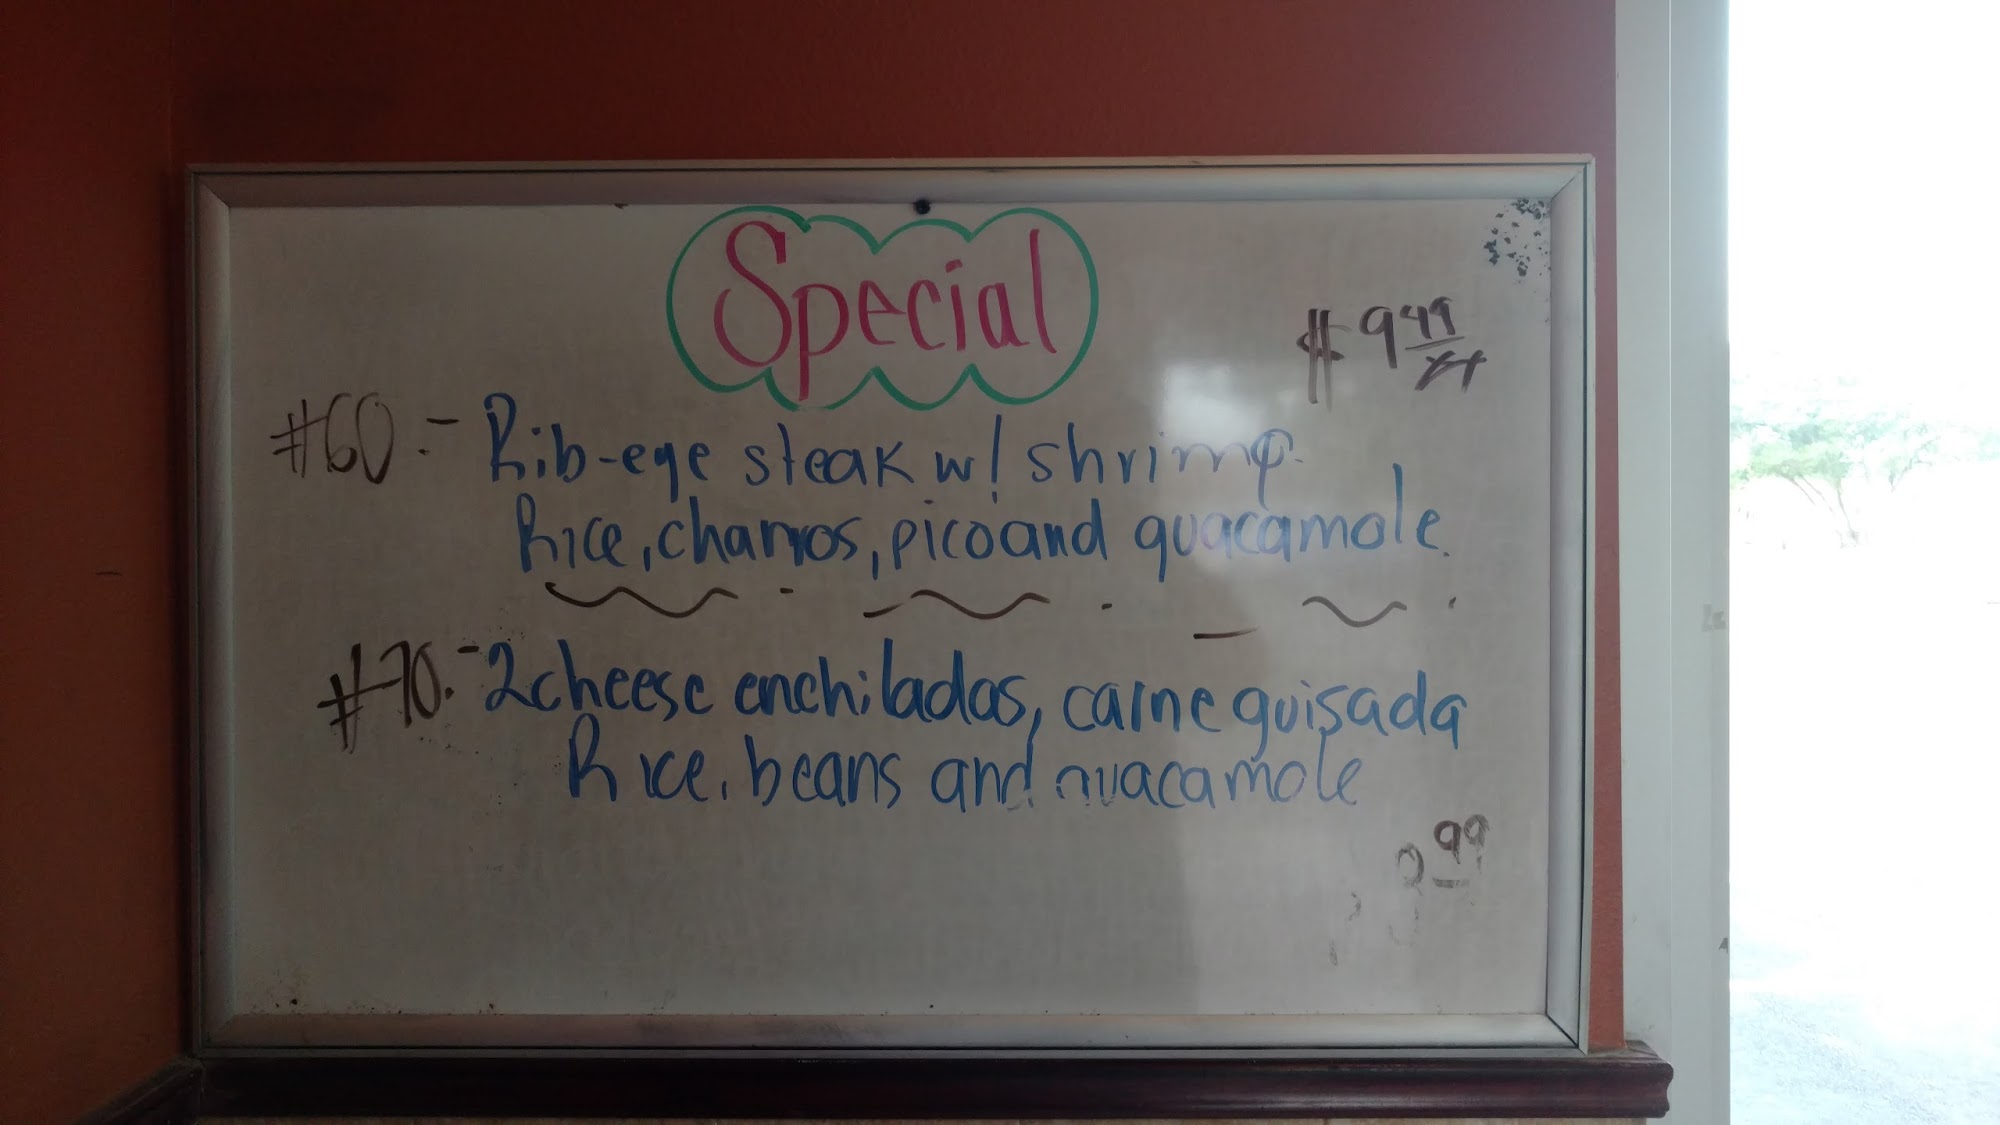 Special
$9 49
#60.- Rib-eye steak w/ shrimp.
Rice, charros, pico and guacamole.
#70.- 2 cheese enchiladas, carne guisada
Rice, beans and guacamole
99